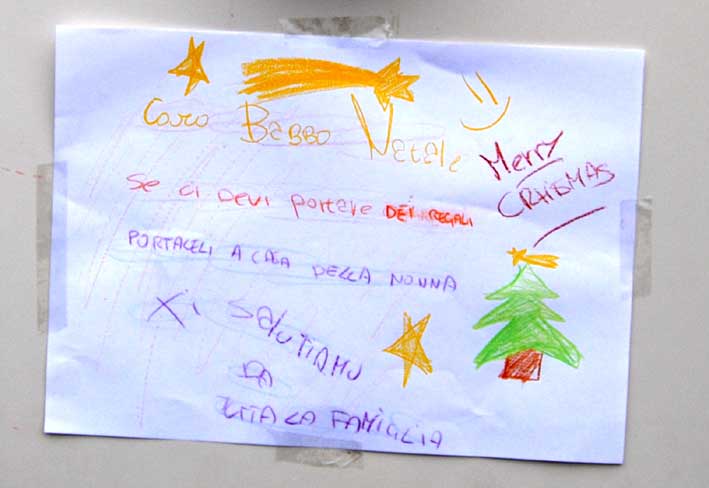 Caro Babbo Natale
Merry
CRHISMAS
Se ci Devi portare DEI REGALI
PORTACELI A CASA DELLA NONNA
Xi SALUTIAMO
DA
TUTTA LA FAMIGLIA